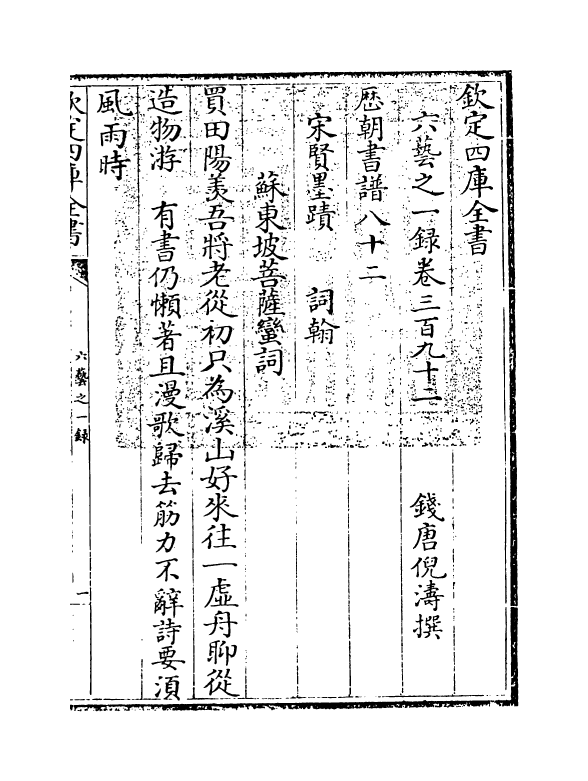 欽定四庫全書
六藝之一錄卷三百九十二
錢唐倪濤撰
歴朝書譜八十二
宋賢墨蹟 詞翰
蘇東坡菩薩蠻詞
買田陽羨吾將老從初只為溪山好來往一虛舟聊從
造物游 有書仍懶著且漫歌歸去筋力不辭詩要湏
風雨時
欽定四庫全書
六藝之一錄
一